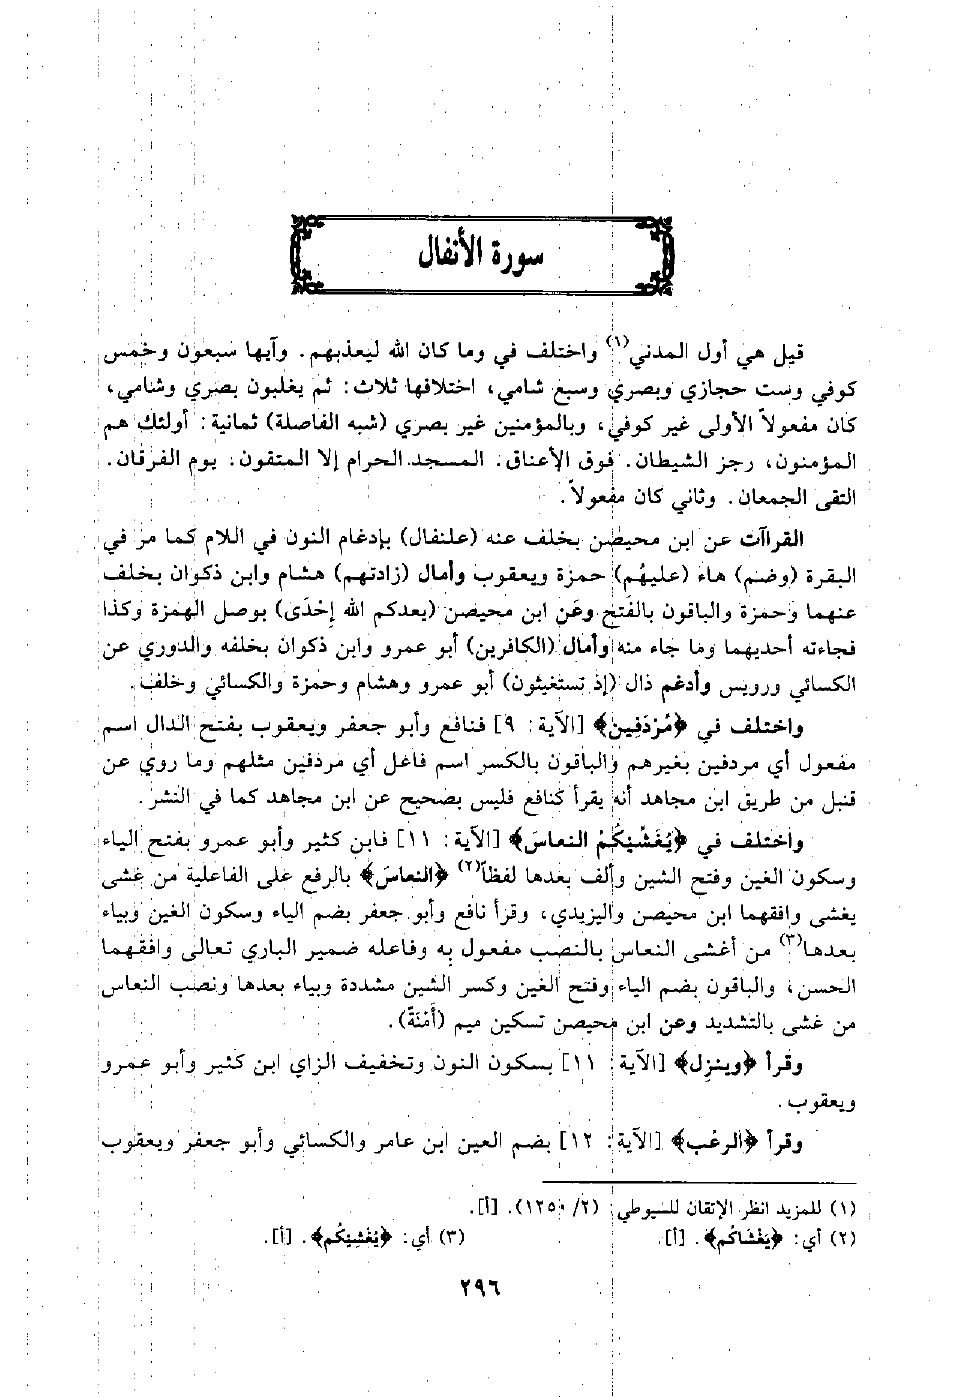 سورة الأنفال
قيل هي أول المدني(١) واختلف في وما كان الله ليعذبهم. وآيها سبعون وخمس
كوفي وست حجازي وبصري وسبع شامي، اختلافها ثلاث: ثم يغلبون بصري وشامي،
كان مفعولاً الأولى غير كوفي، وبالمؤمنين غير بصري (شبه الفاصلة) ثمانية: أولئك هم
المؤمنون، رجز الشيطان. فوق الأعناق. المسجد الحرام إلا المتقون. يوم الفرقان.
التقى الجمعان. وثاني كان مفعولاً.
القراآت عن ابن محيصن بخلف عنه (علنفال) بإدغام النون في اللام كما مر في
البقرة (وضم) هاء (عليهُم) حمزة ويعقوب وأمال (زادتهم) هشام وابن ذكوان بخلف
عنهما وحمزة والباقون بالفتح وعن ابن محيصن (يعدكم الله إحْدَى) بوصل الهمزة وكذا
فجاءته أحديهما وما جاء منه وأمال (الكافرين) أبو عمرو وابن ذكوان بخلفه والدوري عن
الكسائي ورويس وأدغم ذال (إذ تستغيثون) أبو عمرو وهشام وحمزة والكسائي وخلف.
واختلف في ﴿مُرْدَفِين﴾ [الآية: ٩] فنافع وأبو جعفر ويعقوب بفتح الدال اسم
مفعول أي مردفين بغيرهم والباقون بالكسر اسم فاعل أي مردفين مثلهم وما روي عن
قنبل من طريق ابن مجاهد أنه يقرأ كنافع فليس بصحيح عن ابن مجاهد كما في النشر.
واختلف في ﴿يُغَشِّيكُمُ النعاسَ﴾ [الآية: ١١] فابن كثير وأبو عمرو بفتح الياء
وسكون الغين وفتح الشين وألف بعدها لفظاً(٢) ﴿النعاسُ﴾ بالرفع على الفاعلية من غشى
يغشى وافقهما ابن محيصن واليزيدي، وقرأ نافع وأبو جعفر بضم الياء وسكون الغين وبياء
بعدها(٣) من أغشى النعاس بالنصب مفعول به وفاعله ضمير الباري تعالى وافقهما
الحسن، والباقون بضم الياء وفتح الغين وكسر الشين مشددة وبياء بعدها ونصب النعاس
من غشى بالتشديد وعن ابن محيصن تسكين ميم (أَمْنَةً).
وقرأ ﴿وينزِل﴾ [الآية: ١١] بسكون النون وتخفيف الزاي ابن كثير وأبو عمرو
ويعقوب.
وقرأ ﴿الرعُب﴾ [الآية: ١٢] بضم العين ابن عامر والكسائي وأبو جعفر ويعقوب
(١) للمزيد انظر الإتقان للسيوطي: (٢/ ١٢٥٠). [أ].
(٢) أي: ﴿يَغْشَاكُم﴾. [أ]. (٣) أي: ﴿يُغْشِيكُم﴾. [أ].
٢٩٦